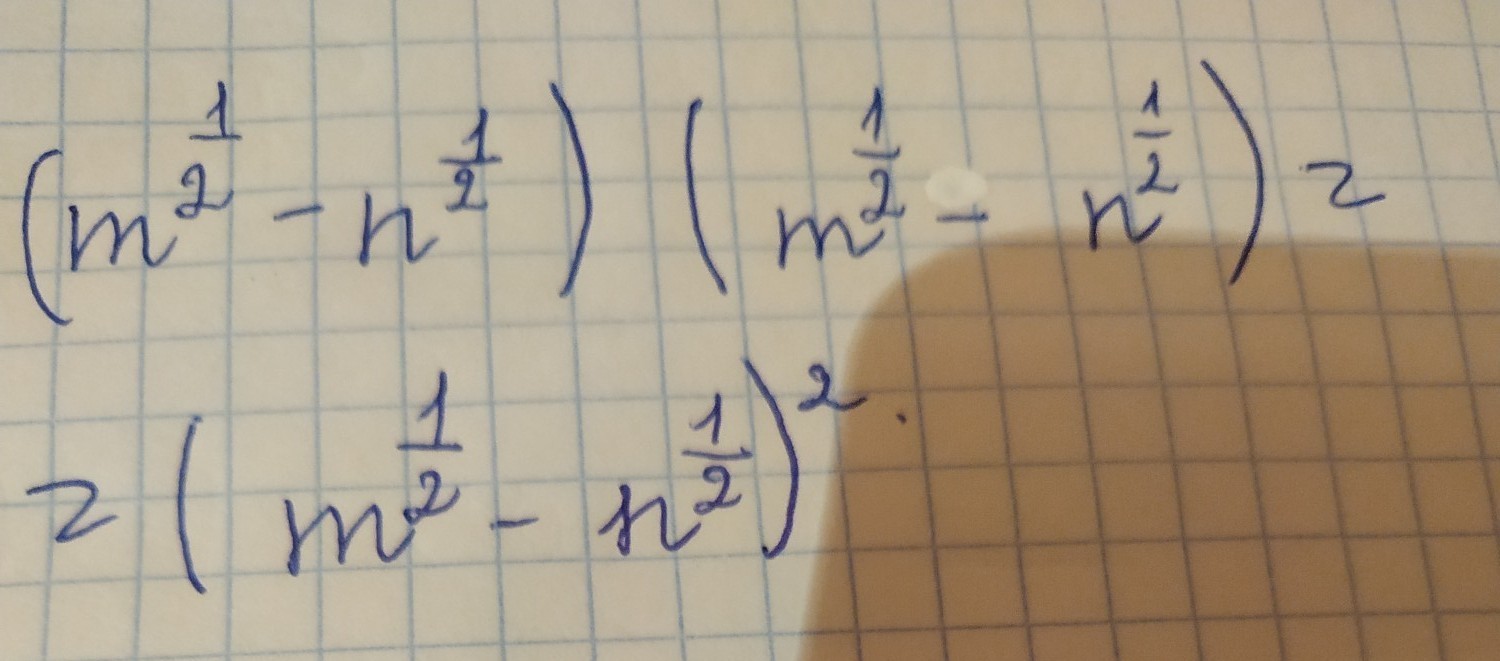 (m^{\frac{1}{2}} - n^{\frac{1}{2}}) (m^{\frac{1}{2}} - n^{\frac{1}{2}}) =
= (m^{\frac{1}{2}} - n^{\frac{1}{2}})^2.